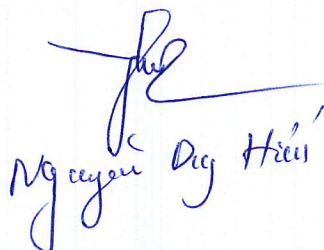 Nguyễn Duy Hiếu